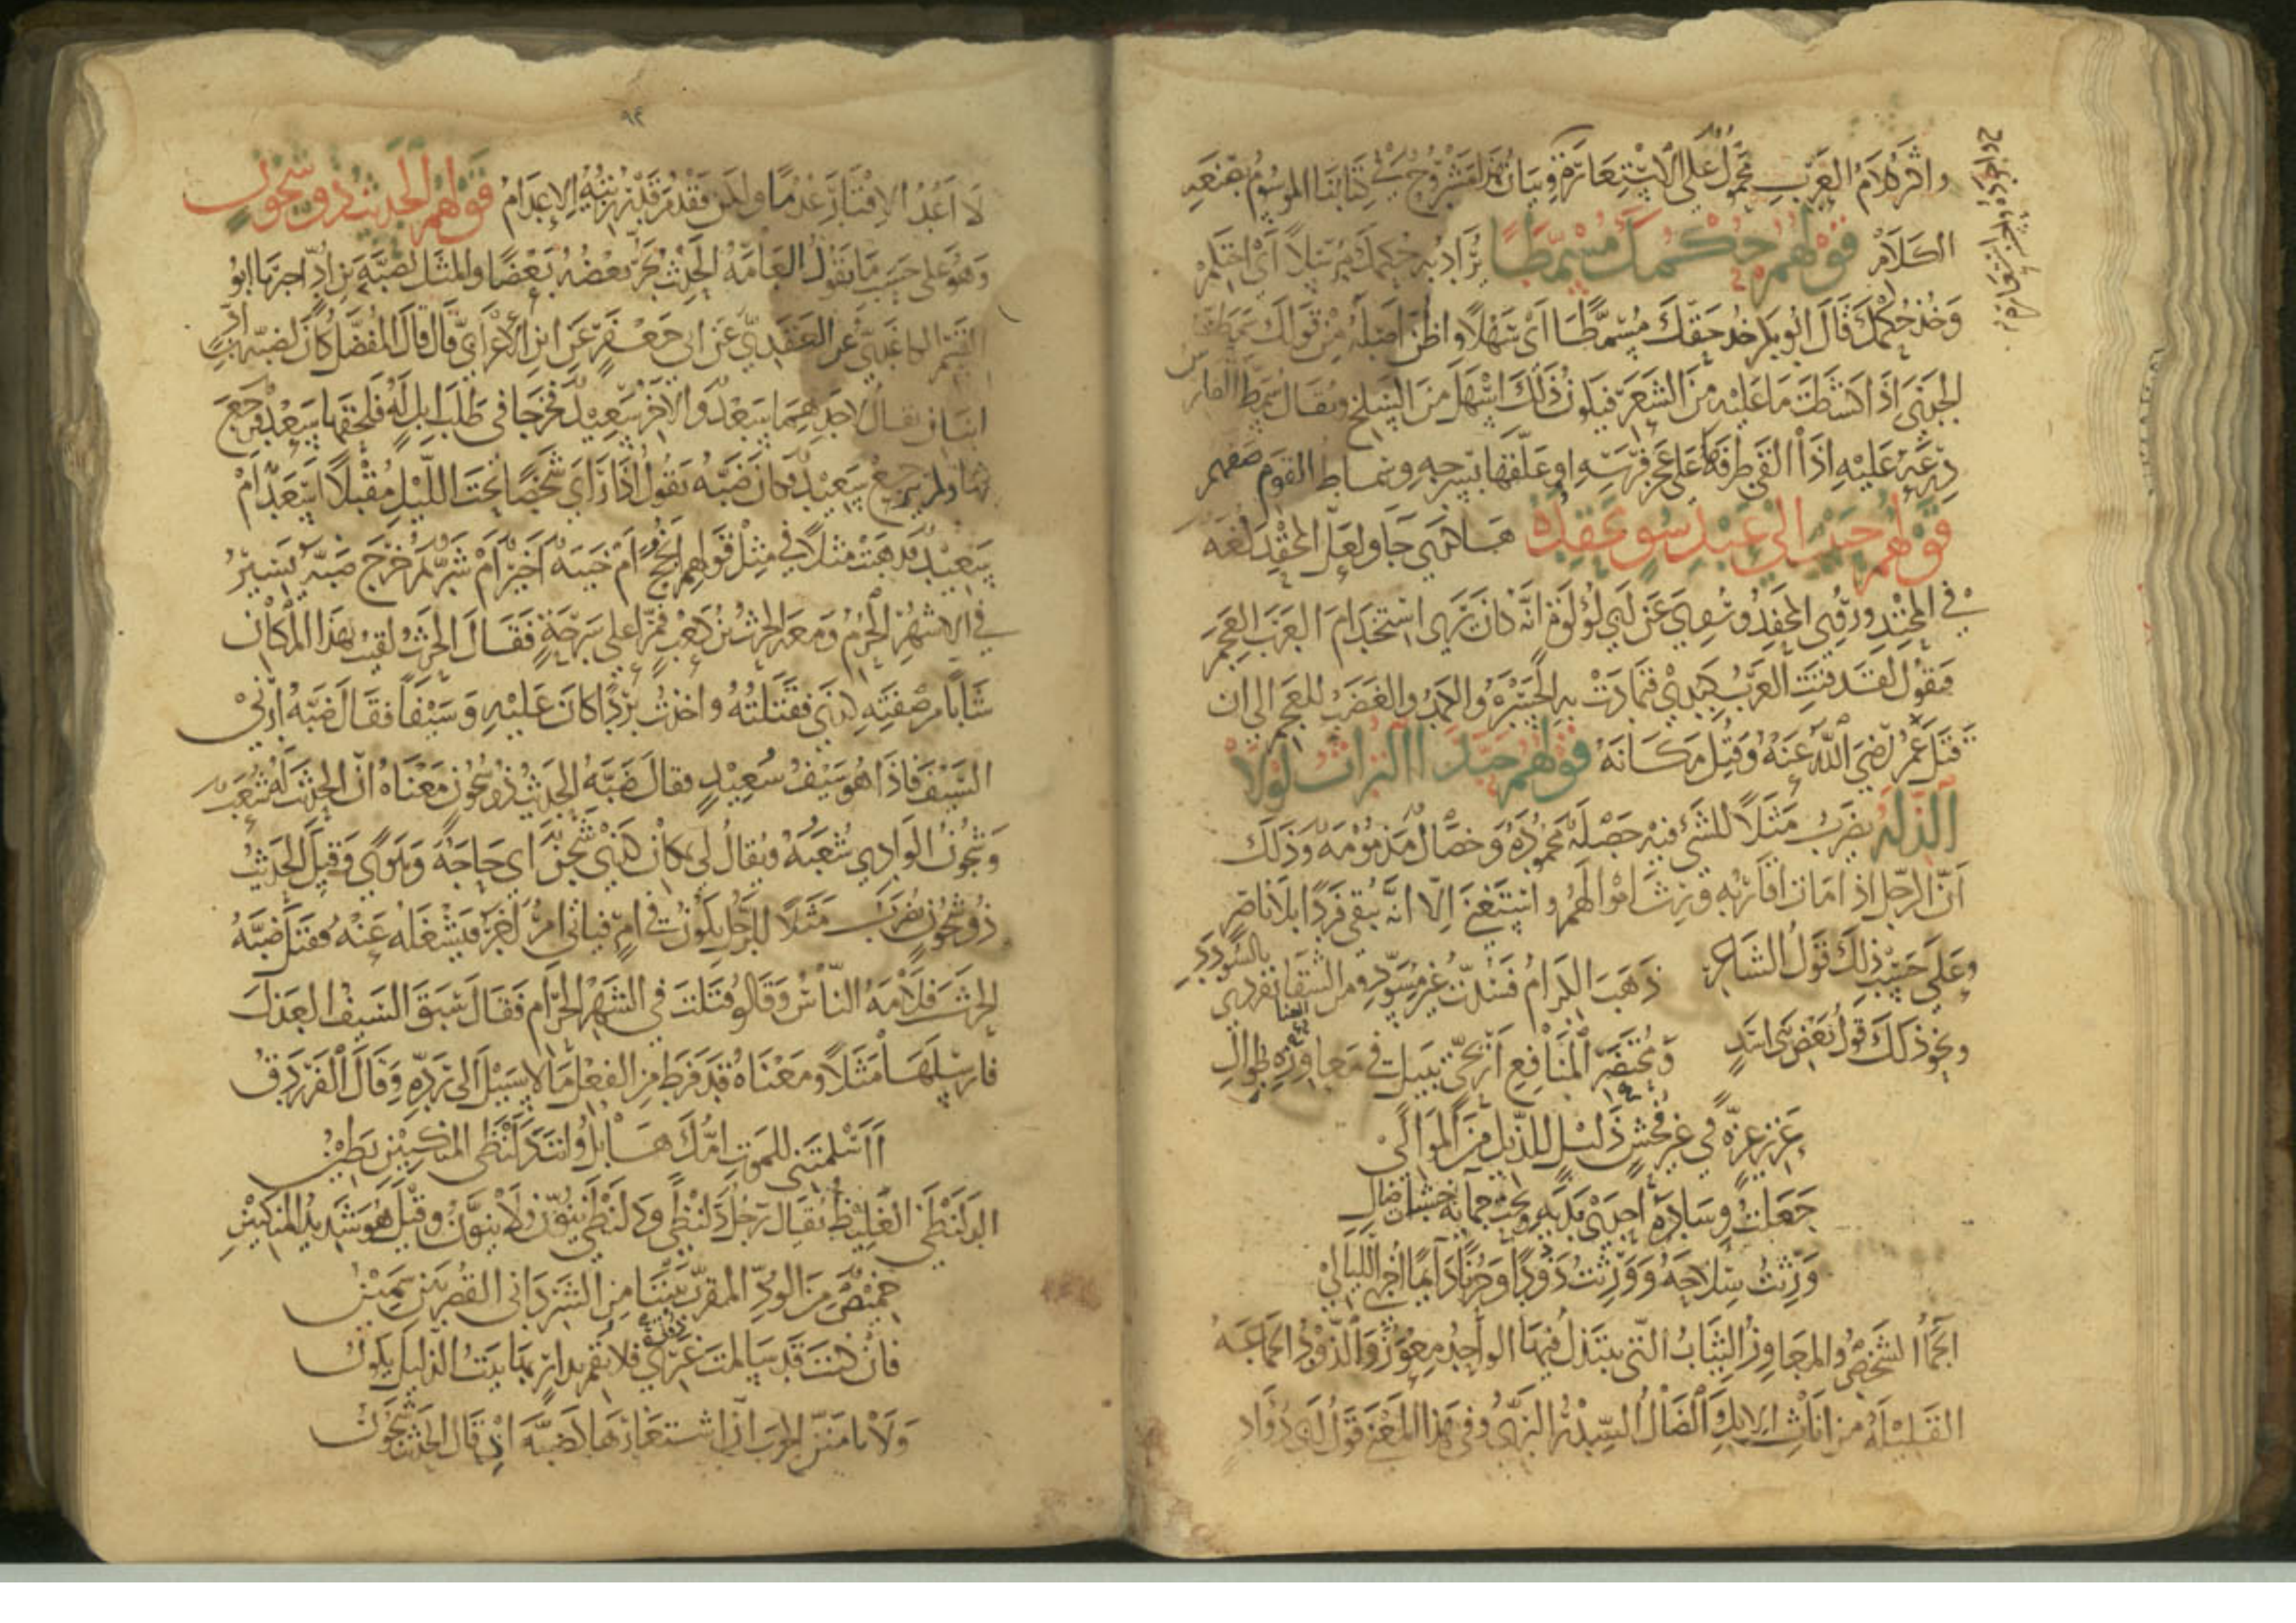 واكثر كلام العرب محمول على الاستعارة وبيان هذا مشروح في كتابنا الموسوم بصنعة
الكلام قولهم حكمك مسمطا يراد به حكمك مرسلا اى احتكم
وخذ حكمك قال ابو بكر خذ حقك مسمطا اى سهلا واظن اصله من قولك سمطت
الجدي اذا كشطت ما عليه من الشعر فيكون ذلك اسهل من السلخ ويقال سمط الفارس
درعه عليه اذا القى طرفها على عجز فرسه او علقها بسرجه وسماط القوم صفهم
قولهم حبيب الى عبد سوء محقده هكذا جا ولعل المحقد لغة
في المحتد وروي المحفد وروي عن ابي لؤلؤة انه كان يرى استخدام العرب العجم
فيقول لقد فتت العرب كبدي فتمادت به الحسرة والكمد والغضب للعجم الى ان
قتل عمر رضي الله عنه وقتل مكانه قولهم حبذا التراث لولا
الذلة يضرب مثلا للشي فيه خصلة محمودة وخصال مذمومة وذلك
ان الرجل اذا مات اقاربه ورث اموالهم واستغنى الا انه يبقى فردا بلا ناصر
وعلى حسب ذلك قول الشاعر ذهب الكرام فسدت غير مسود ومن الشقا تفردي بالسودد
ونحو ذلك قول بعض بني اسد ومحتضر المنافع اريحي نبيل في معاوزة طوال
عزيز عزة في غير فحش ذليل للذليل من الموالي
جعلت وساده احدى يديه وتحت جمائه خشبات ضال
ورثت سلاحه وورثت ذودا وحزنا دائما اخرى الليالي
الجماء الشخص والمعاوز الثياب التي يبتذل فيها الواحد معوز والذود الجماعة
القليلة من اناث الابل والضال السدر البري وفي هذا المعنى قول ابي دؤاد
٩٢
لا اعد الاقتار عدما ولكن فقد من قد رزئته الاعدام قولهم الحديث ذو شجون
وهو على حسب ما تقول العامة الحديث يجر بعضه بعضا والمثل لضبة بن اد اخبرنا ابو
القسم الكاغدي عن العقدي عن ابي جعفر عن ابن الاعرابي قال قال المفضل كان لضبة بن اد
ابنان يقال لاحدهما سعد والاخر سعيد فخرجا في طلب ابل له فلحقها سعد فرجع
بها ولم يرجع سعيد وكان ضبة يقول اذا راى شخصا تحت الليل مقبلا اسعد ام
سعيد فذهبت مثلا في مثل قولهم انجح ام خيبة اخير ام شر ثم خرج ضبة يسير
في الاشهر الحرم ومعه الحرث بن كعب فمرا على سرحة فقال الحرث لقيت بهذا المكان
شابا من صفته كذي فقتلته واخذت بردا كان عليه وسيفا فقال ضبة ارني
السيف فاذا هو سيف سعيد فقال ضبة الحديث ذو شجون معناه ان الحديث له شعب
وشجون الوادي شعبه ويقال لي بمكان كذي شجن اى حاجة وهوى وقيل الحديث
ذو شجون يضرب مثلا للرجل يكون في امر فياتي امر اخر فيشغله عنه فقتل ضبة
الحرث فلامه الناس وقالوا قتلت في الشهر الحرام فقال سبق السيف العذل
فارسلها مثلا ومعناه قد فرط من الفعل ما لا سبيل الى رده وقال الفرزدق
ااسلمتني للموت امك هابل وانت دلنظى المنكبين بطين
الدلنظى الغليظ يقال رجل دلنظى ودلنظى ينون ولا ينون وقيل هو شديد المنكبين
خميص من الود المقرب بيننا من الشر داني القصريين سمين
فان كنت قد سالمت دوني فلا تقم بدار بها بيت الذليل يكون
ولا تامنن الحرب ان اشتغارها كضبة اذ قال الحديث شجون